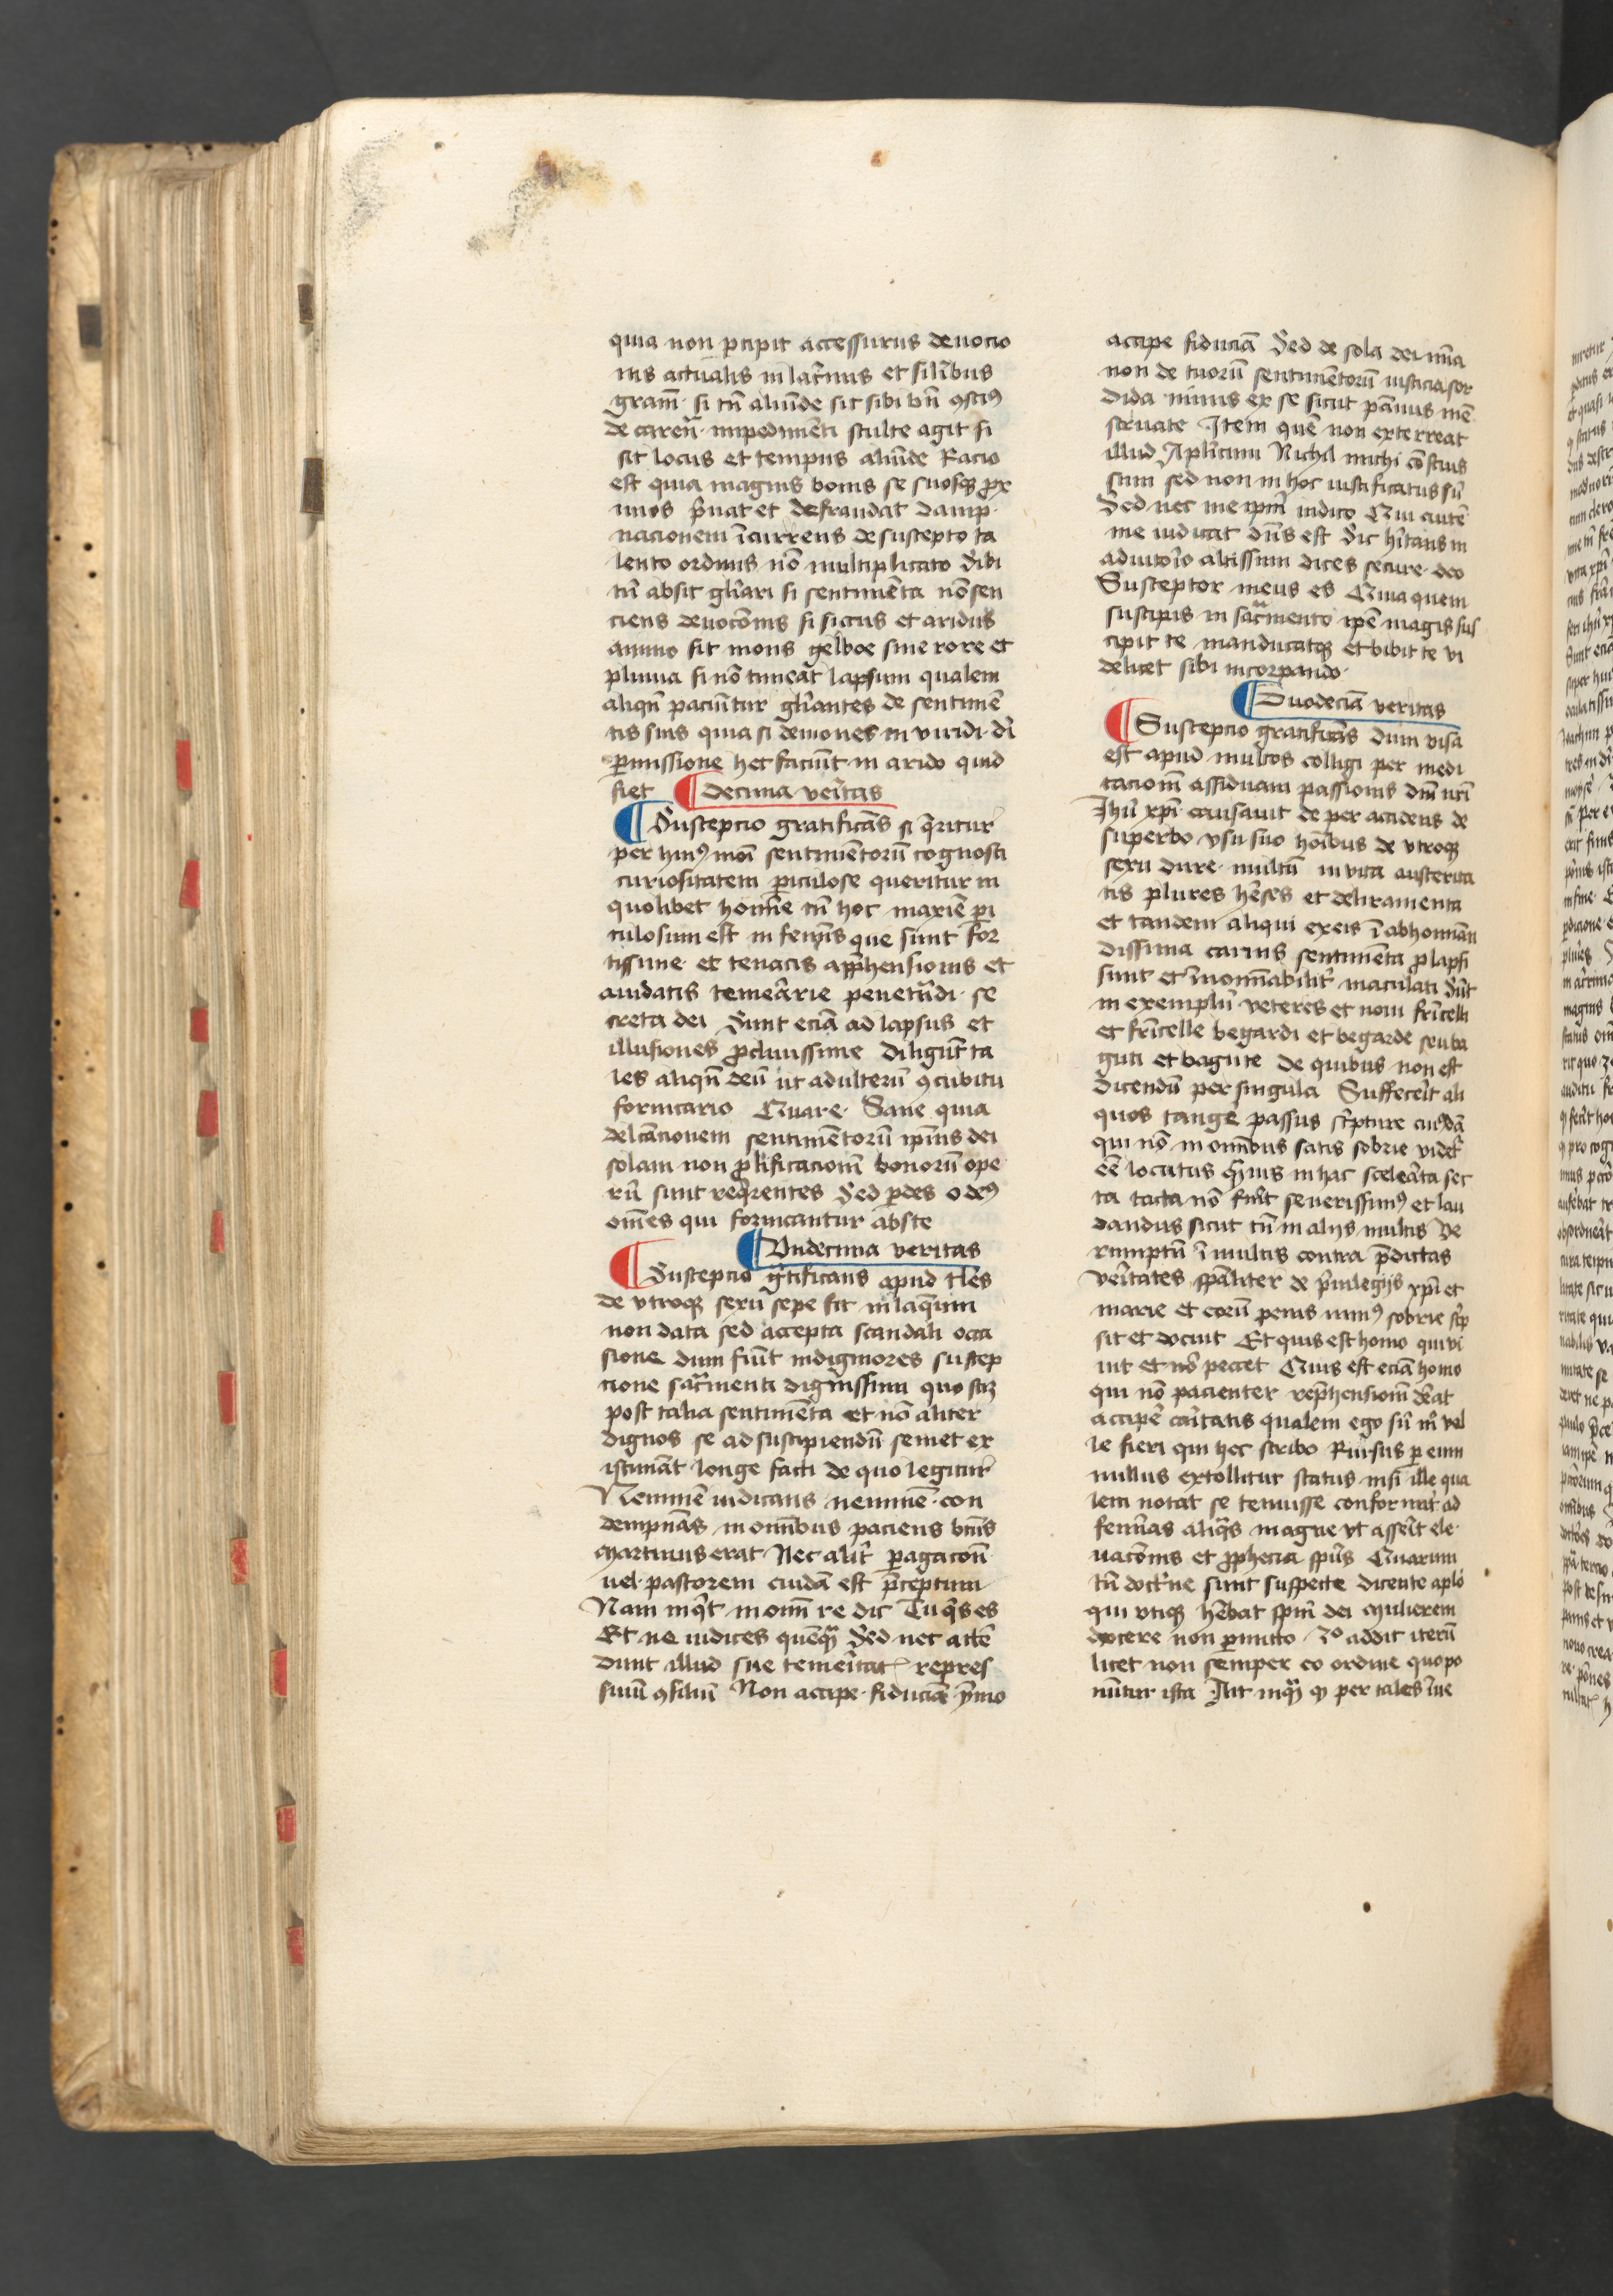 quia non p̄cipit accessurus deuocio
nis actualis in lac̄rimis et silībus
gram̄ · si tn̄ aliūde sit sibi bn̄ ꝯscius
de careñ · impedimēti stulte agit si
sit locus et tempus aliūde Racio
est quia magnis bonis se suosqꝫ prox
imos p̄uat et defraudat damp
nacionem īcurrens de suscepto ta
lento ordinis nō multiplicato Sibi
tn̄ absit gl̄iari si sentimēta nō sen
ciens deuocōnis si siccus et aridus
animo sit mons gelboe sine rore et
pluuia si nō timeat lapsum qualem
aliqn̄ paciūtur gl̄iantes de sentimē
tis suis quia si demones in viridi · di
p̄missione hec faciūt in arido quid
fiet decima veritas
Suscepcio gratificās si q̄ritur
per huiꝰ moī sentimētorū cognosci
curiositatem p̄iculose queritur in
quolibet homīe tn̄ hoc maxīe p̄i
culosum est in femīs que sunt for
tissime · et tenacis app̄hensionis et
auidatis temerarie penetrādi · se
creta dei Sunt eciā ad lapsus et
illusiones ꝓcliuissime diligūt ta
les aliqn̄ deū ut adulterū ꝯcubitu
fornicario Quare · Sane quia
delcācionem sentimētorū ipīus dei
solam non ꝓlificacionē bonorū ope
rū sunt req̄rentes Sed p̄des o deꝰ
om̄es qui fornicantur abste
Vndecima veritas
Suscepcio gr̄tificans apud tl̄es
de vtroqꝫ sexu sepe fit in laqueum
non data sed accepta scandali occa
sione dum fiūt indigniores suscep
cione sacr̄menti dignissimi quo scꝫ
post talia sentimēta et nō aliter
dignos se ad suscipiendū semet ex
istimāt longe facti de quo legitur
Neminē iudicans neminē · con
dempnās in omībus paciens bn̄is
Martinus erat Nec alit̄ p̄agacōn̄
uel · pastorem cuidā est p̄ceptum
Nam inq̄t in omī re dic Tu q̄s es
Et ne iudices quēqꝫ Sed nec attē
dunt illud sue temeritat repres
siuū ꝯsiliū Non accipe · fiduciā ymo
accipe fiduciā Sed de sola dei mīa
non de tuorū sentimētorū iusticia sor
dida nimis ex se sicut pānus mē
struate Item quē non exterreat
illud Apl̄icum Nichil michi cōscius
sum sed non in hoc iustificatus sū
Sed nec me ipm̄ iudico Qui autē
me iudicat dn̄s est Sic hītans in
adiutorio altissimi dices secure · deo
Susceptor meus es Quia quem
suscipis in sacr̄mento ipē magis sus
cipit te manducatqꝫ et bibit te vi
delicet sibi incorpando ·
Duodecīa veritas
Suscepcio gratificās dum visa
est apud multos colligi per medi
tacionē assiduam passionis dn̄i nr̄i
Ihū xp̄i causauit de per accidens de
superbo vsu suo homībus de vtroqꝫ
sexu dure · multū in vita austerita
tis plures hēses et deliramenta
et tandem aliqui ex eis ī abhominan
dissima carnis sentimēta ꝓlapsi
sunt et īnomīabilit̄ maculati Sūt
in exemplū veteres et noui fr̄icelli
et fr̄icelle begardi et begarde seu ba
guti et bagute de quibus non est
dicendū per singula Suffecerit ali
quos tangē passus sc̄pture cuiꝰdā
qui nō in omībus satis sobrie videt̄
eē locutus q̄uis in hac scelerāta sec
ta tacta nō fuīt seuerissimꝰ et lau
dandus sicut tn̄ in alijs multis Ve
rumptū ī multis contra p̄dictas
veritates spāliter de p̄uilegijs xp̄i et
marie et eorū penis nimꝰ sobrie sc̄p
sit et docuit Et quis est homo qui vi
uit et nō peccet Quis est eciā homo
qui nō pacienter rep̄hensionē debeat
accipē caritatis qualem ego sū mͦ vel
le fieri qui hec scribo Rursus p̄ eum
nullus extollitur status nisi ille qua
lem notat se tenuisse conformat̄ ad
femīas aliq̄s magne vt asserit ele
uacōnis et ꝓphecia spūs Quarum
tn̄ doctrīne sunt suspecte dicente apl̄o
qui vtiqꝫ hēbat spm̄ dei Mulierem
docere non p̄mitto 2ͦ addit iterū
licet non semper eo ordine quo po
nūtur ista Ait inqͣ ꝙ per tales īue